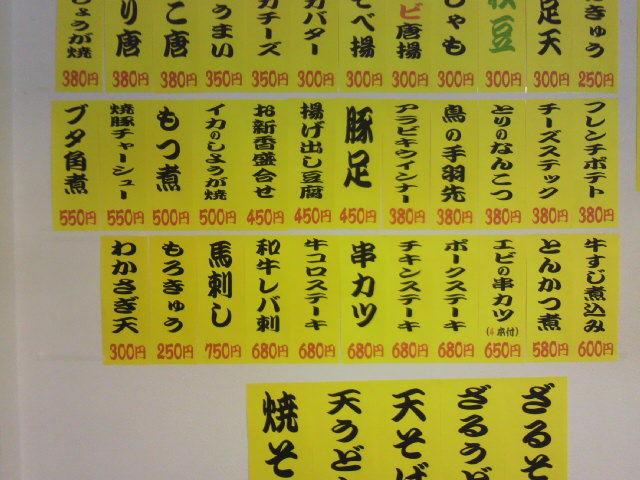 きゅう 250円
足天 300円
豆 300円
しゃも 300円
ビ唐揚 300円
そべ揚 300円
バター 300円
チーズ 350円
うまい 350円
こ唐 380円
り唐 380円
しょうが焼 380円
フレンチポテト 380円
チーズスティック 380円
とりのなんこつ 380円
鳥の手羽先 380円
アラビキウインナー 380円
豚足 450円
揚げ出し豆腐 450円
お新香盛合せ 450円
イカのしょうが焼 500円
もつ煮 500円
焼豚チャーシュー 550円
ブタ角煮 550円
牛すじ煮込み 600円
とんかつ煮 580円
エビの串カツ(4本付) 650円
ポークステーキ 680円
チキンステーキ 680円
串カツ 680円
牛コロステーキ 680円
和牛レバ刺 680円
馬刺し 750円
もろきゅう 250円
わかさぎ天 300円
ざるそ
ざるうど
天そば
天うどん
焼そ